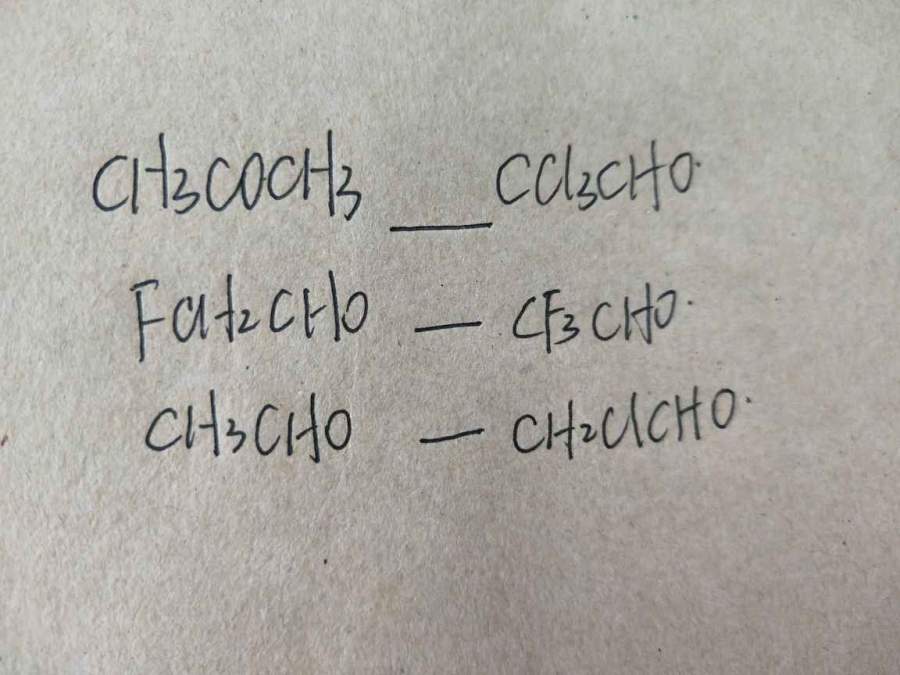 CH3COCH3 — CCl3CHO.
FCH2CHO — CF3CHO.
CH3CHO — CH2ClCHO.